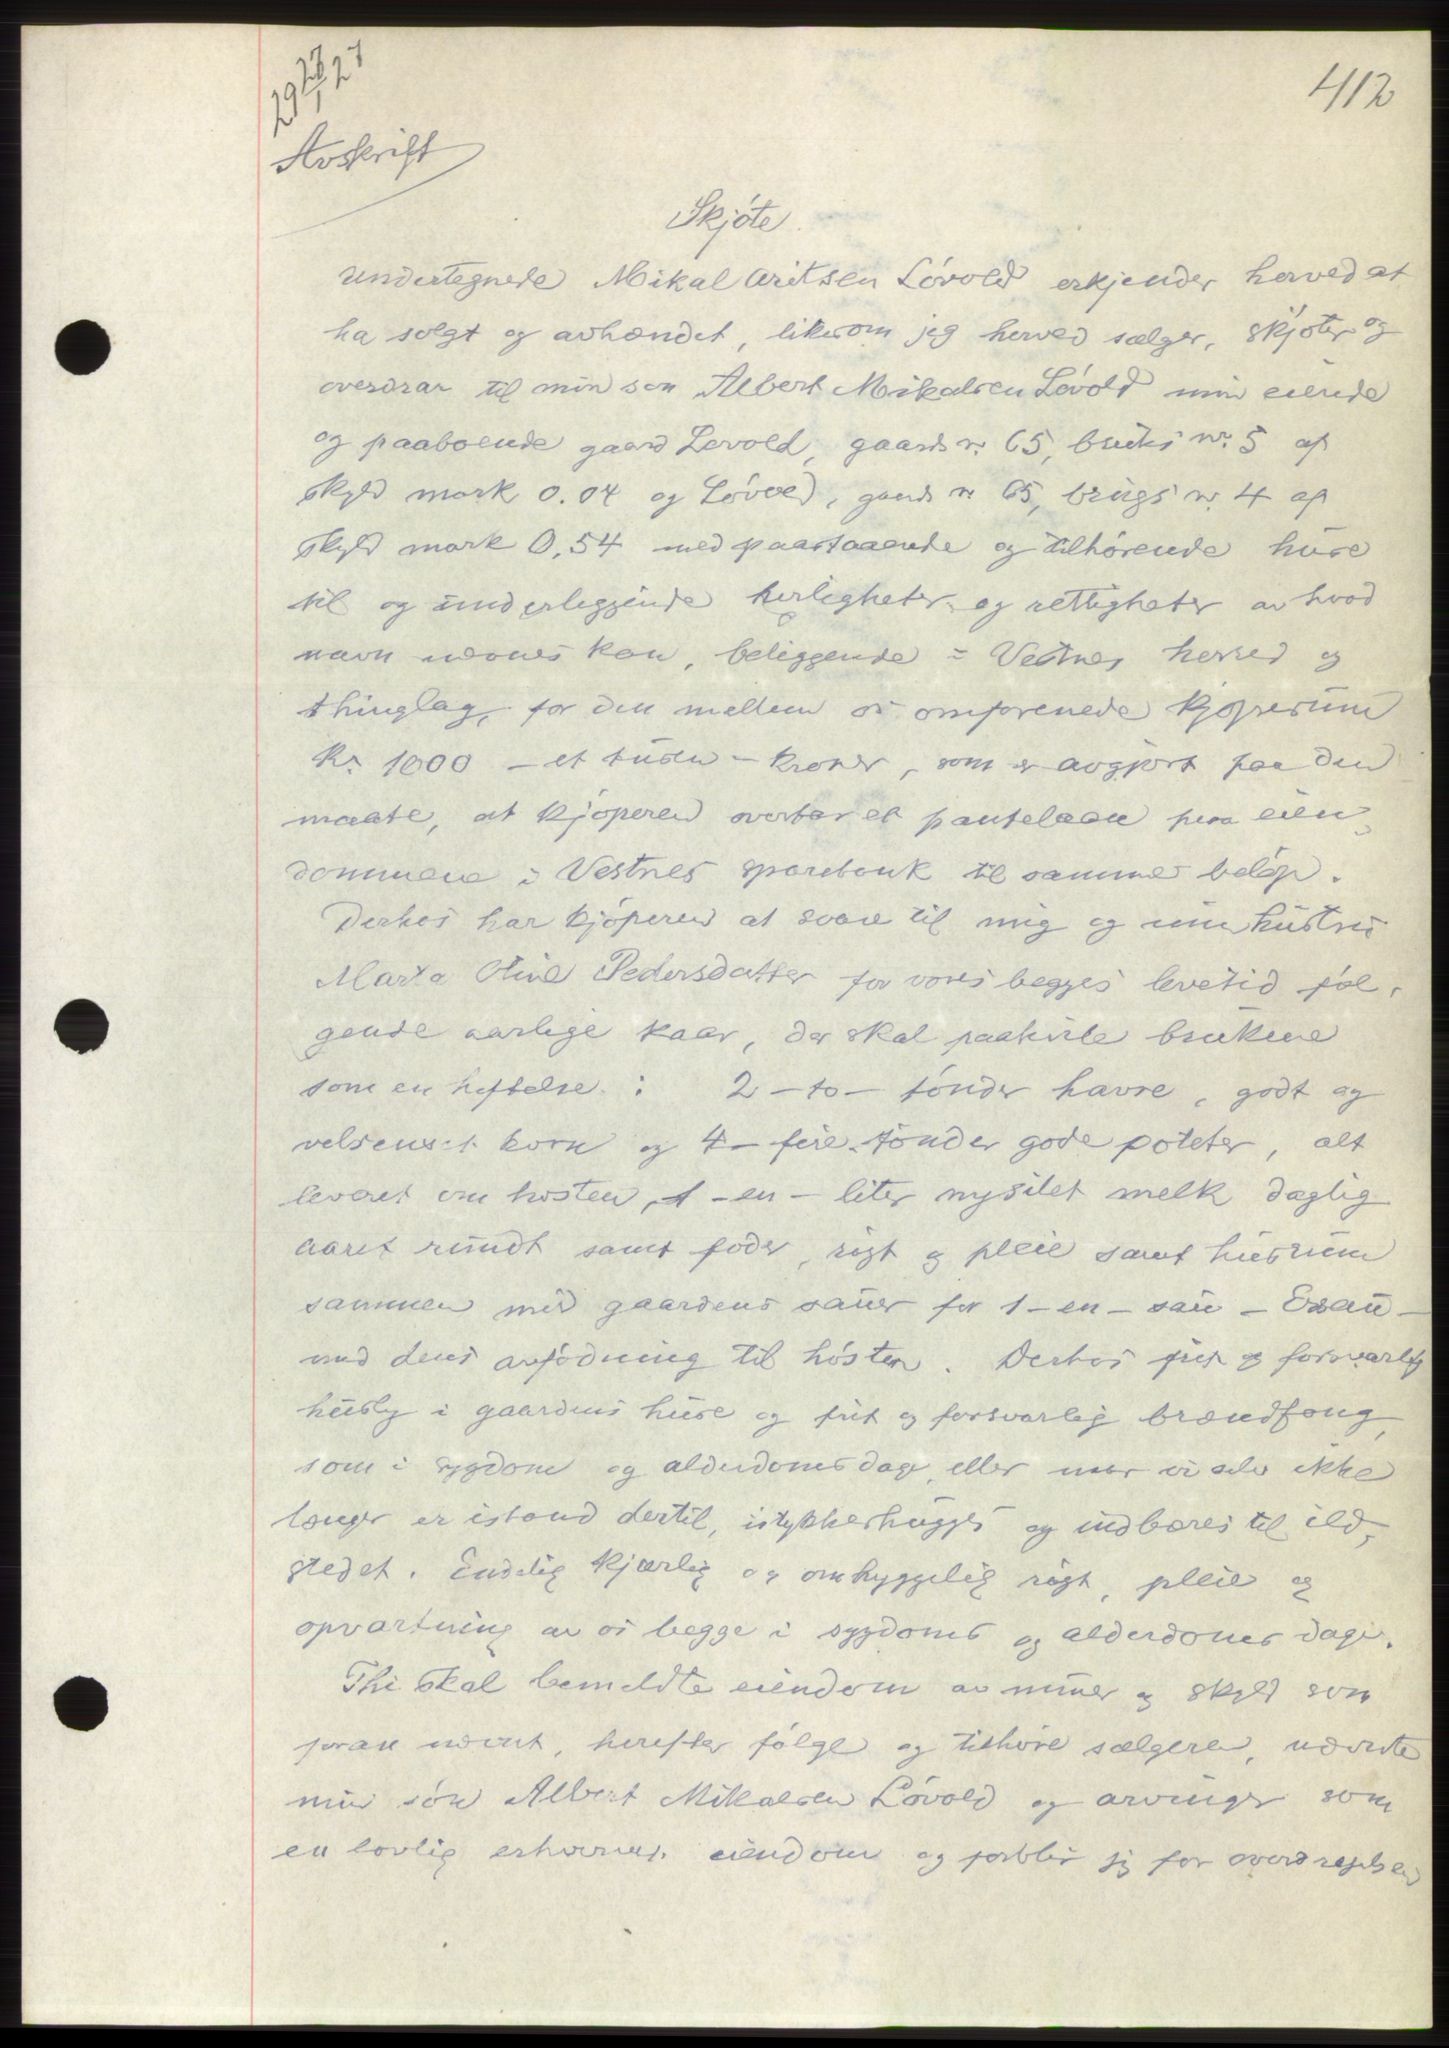 412
29 27/1 27
Avskrift
Skjöte
Undertegnede Mikal Aritsen Lövold erkjender herved at
ha solgt og avhændet, likesom jeg herved sælger, skjöter og
overdrar til min sön Albert Mikalsen Lövold min eiende
og paaboende gaard Lövold, gaards nr. 65, bruks nr. 5 af
skyld mark 0.04 og Lövold, gaards nr 65, brugs nr. 4 af
skyld mark 0,54 med paastaaende og tilhörende huse
til og underliggende herligheter og rettigheter av hvad
navn nævnes kan, beliggende i Vestnes herred og
thinglag, for den mellem os omforenede kjöpesum
Kr. 1000 - et tusen - kroner, som er avgjort paa den
maate, at kjöperen overtar et pantelaan paa eien-
dommene i Vestnes sparebank til samme belöp.
Derhos har kjöperen at svare til mig og min hustru
Marta Oline Pedersdatter for vores begges levetid föl-
gende aarlige kaar, der skal paahvile brukene
som en heftelse: 2 - to - tönder havre, godt og
velrenset korn og 4 - fire - tönder gode poteter, alt
leveret om hösten, 1 - en - liter nysilet melk daglig
aaret rundt samt foder, rögt og pleie samt husrum
sammen med gaardens sauer for 1 - en - sau -
med dens avfödning til hösten. Derhos frit og forsvarlig
husly i gaardens huse og frit og forsvarlig brændfang,
som i sygdom og alderdomsdage, eller naar vi selv ikke
længer er istand dertil, istykkerhugges og indbæres til ild-
stedet. Endelig kjærlig og omhyggelig rögt, pleie og
opvartning av os begge i sygdoms og alderdoms dage.
Thi skal bemeldte eiendom av numer og skyld som
foran nævnt, herefter fölge og tilhöre sælgeren, nævnte
min sön Albert Mikalsen Lövold og arvinger som
en lovlig erhvervet eiendom og forblir jeg for overdragelsen